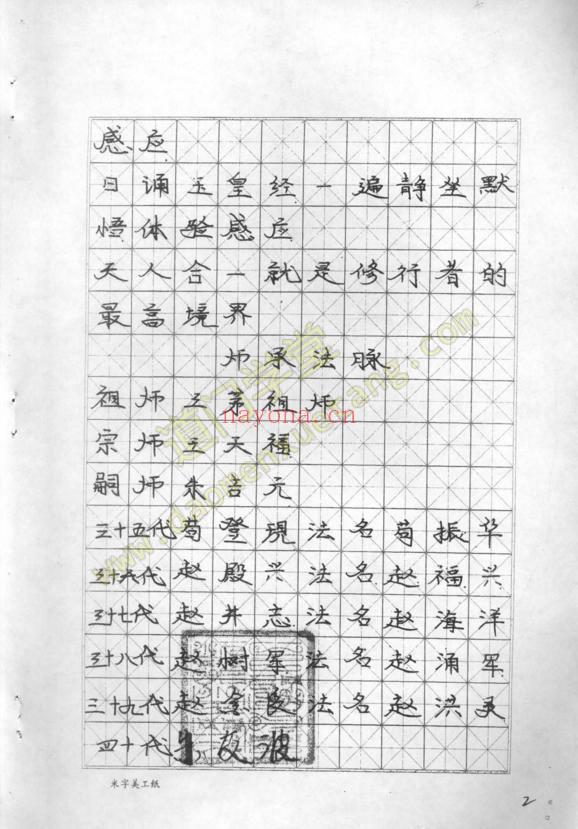 感应
日诵玉皇经一遍静坐默
悟体验感应
天人合一就是修行者的
最高境界
师承法脉
祖师王第祖师
宗师王天福
嗣师朱吉元
三十五代苟登現法名苟振华
三十六代赵殿兴法名赵福兴
三十七代赵井志法名赵海洋
三十八代赵树军法名赵涌军
三十九代赵金良法名赵洪灵
四十代朱 波
米字美工纸
2
道门学堂
www.daomenxuetang.com
nayona.cn